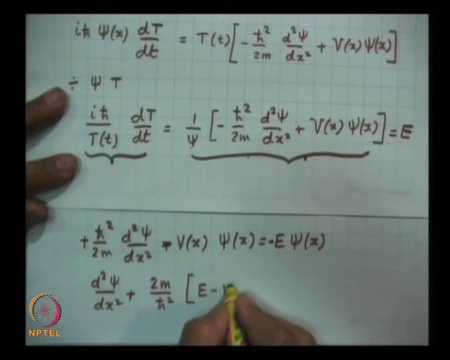 iħ Ψ(x) dT/dt = T(t) [ - ħ²/2m d²Ψ/dx² + V(x) Ψ(x) ]
÷ Ψ T
iħ/T(t) dT/dt = 1/Ψ [ - ħ²/2m d²Ψ/dx² + V(x) Ψ(x) ] = E
+ ħ²/2m d²Ψ/dx² - V(x) Ψ(x) = -E Ψ(x)
d²Ψ/dx² + 2m/ħ² [ E -
NPTEL